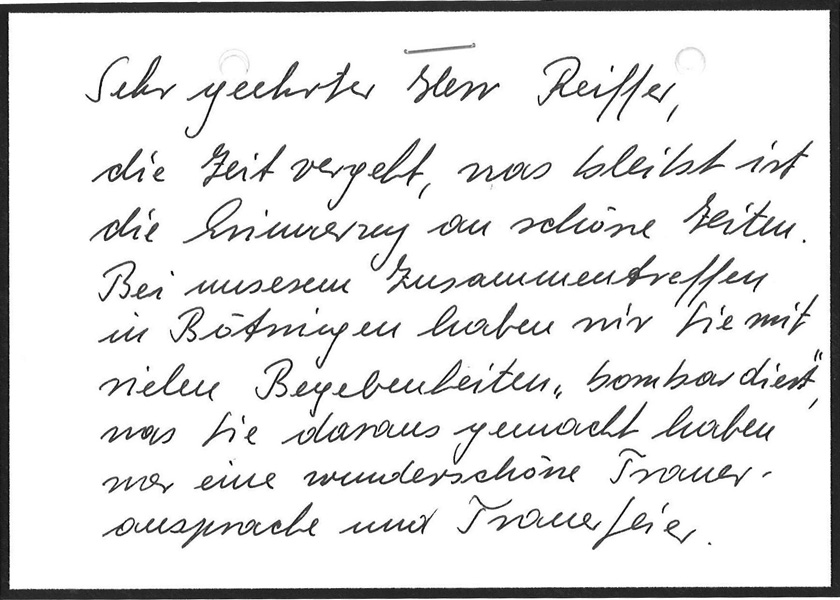 Sehr geehrter Herr Reiffer,
die Zeit vergeht, was bleibt ist
die Erinnerung an schöne Zeiten.
Bei unserem Zusammentreffen
in Bötzingen haben wir Sie mit
vielen Begebenheiten „bombardiert",
was Sie daraus gemacht haben
war eine wunderschöne Trauer-
ansprache und Trauerfeier.